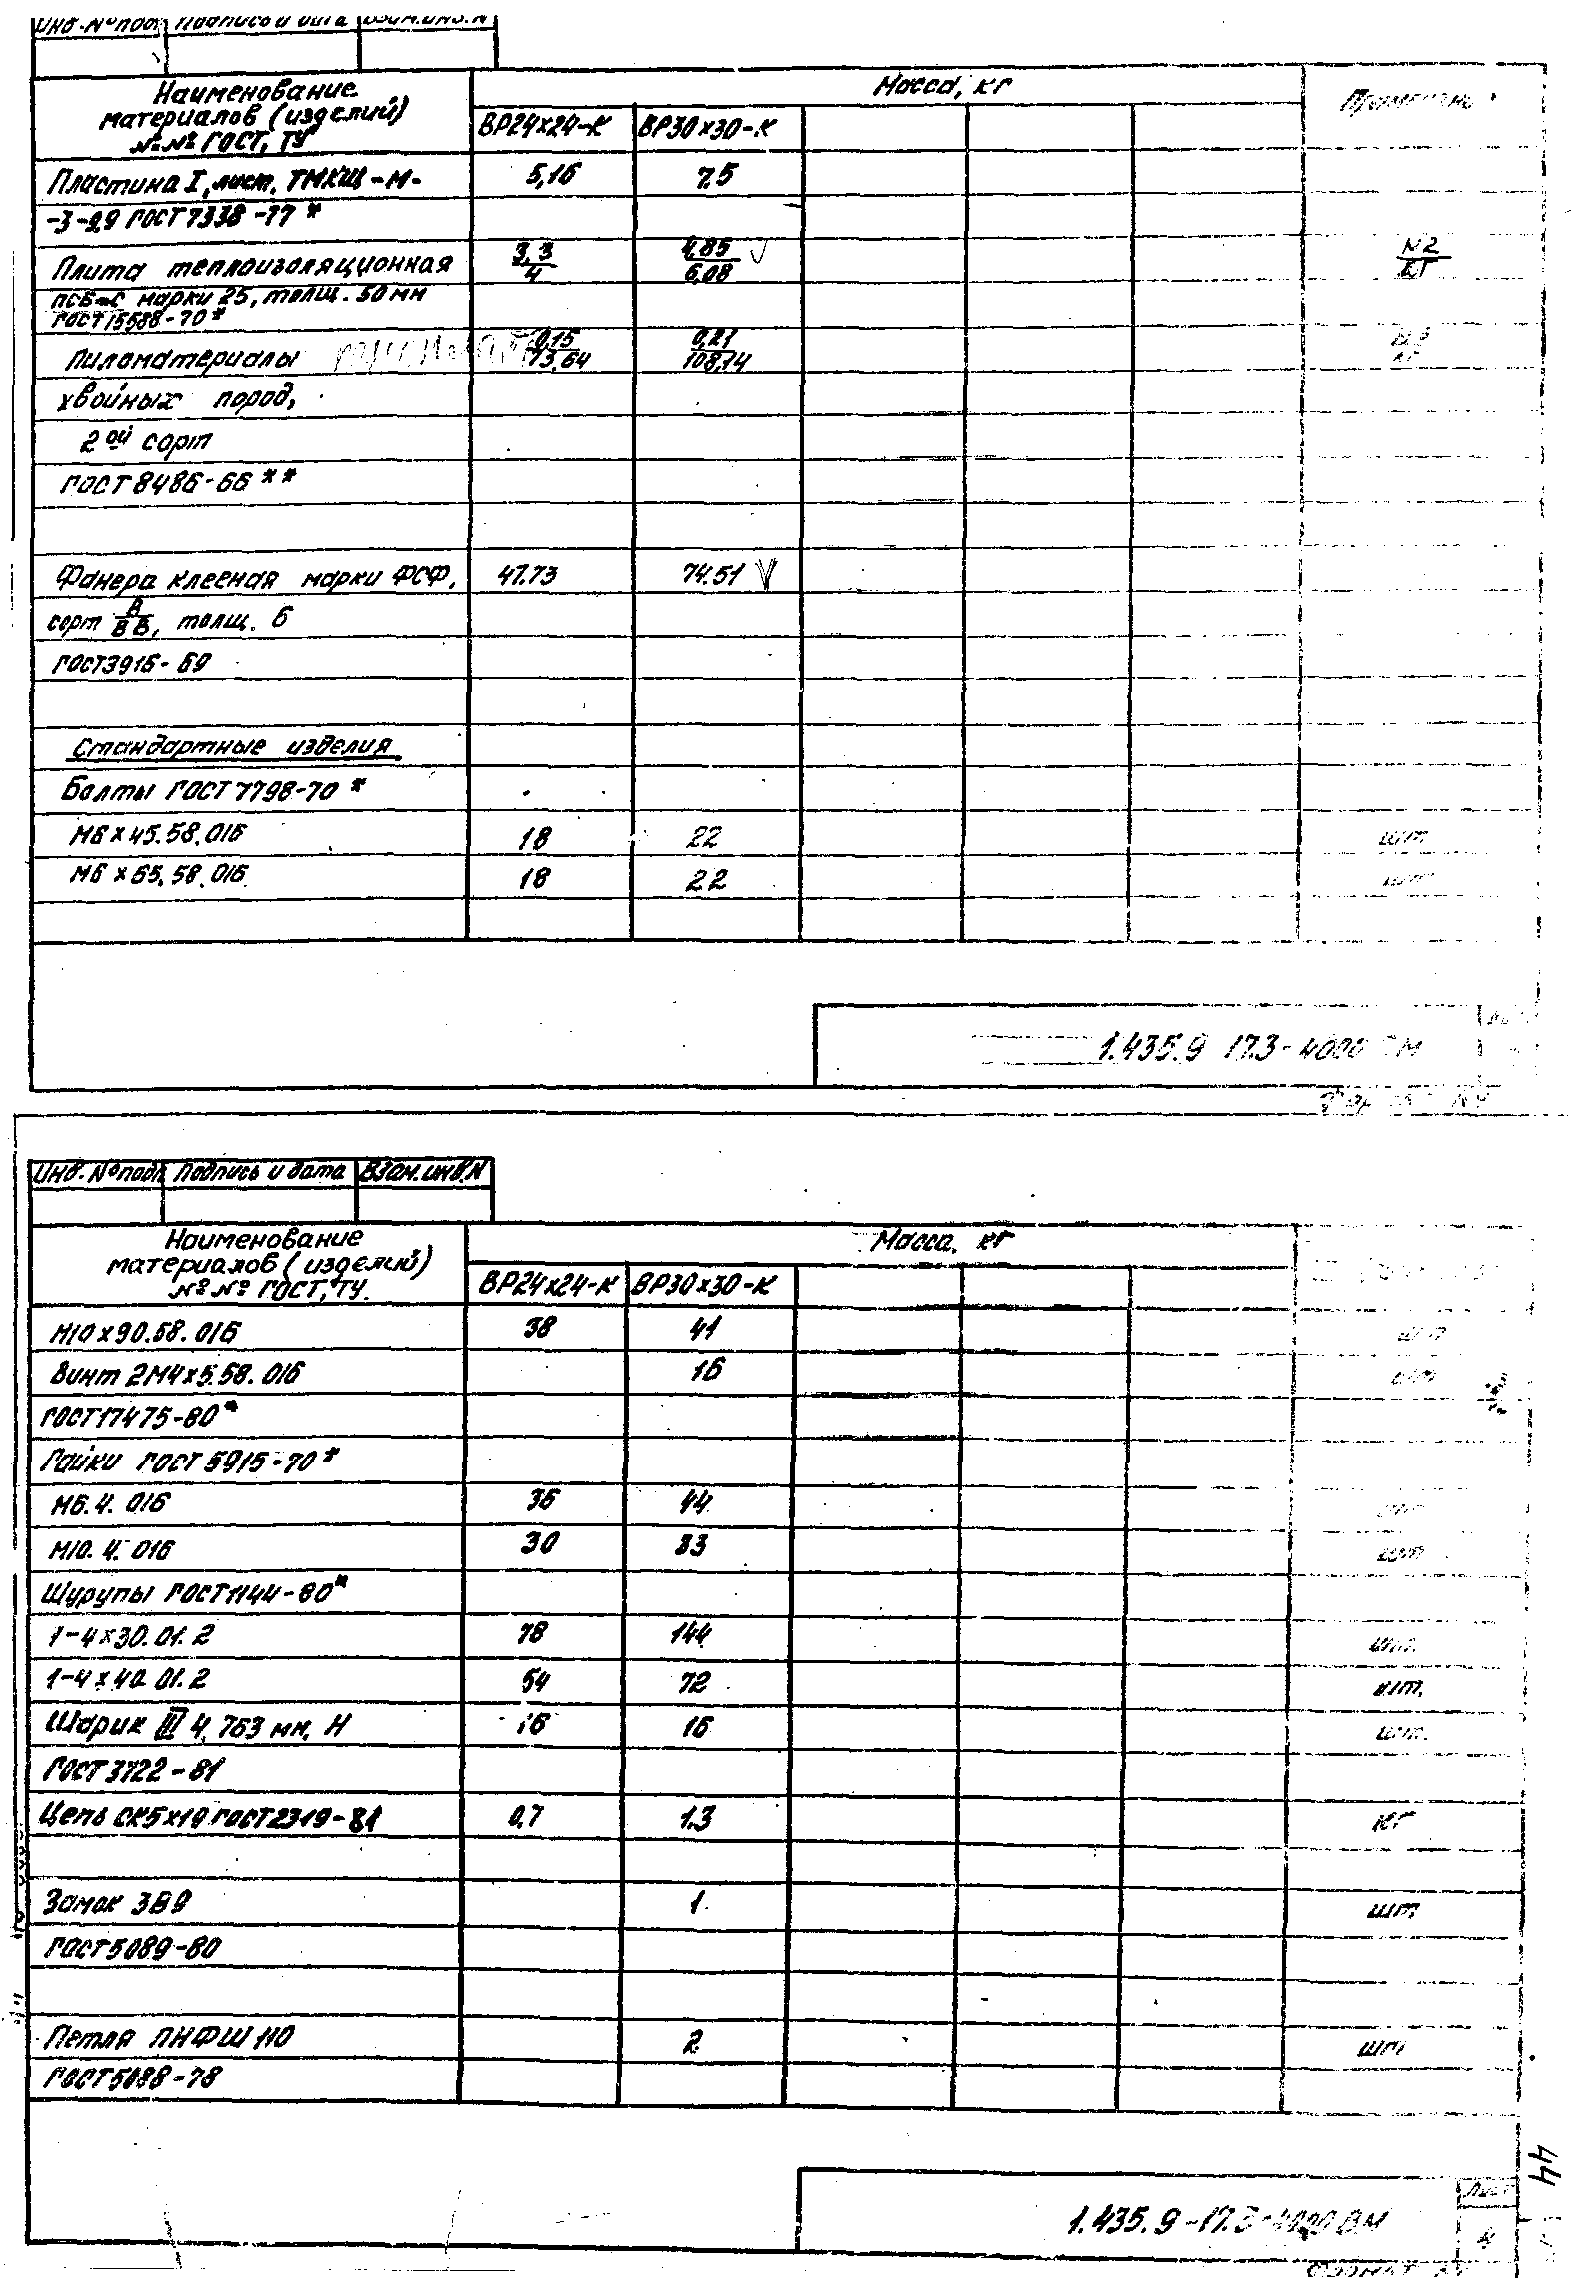 Инв. № подл Подпись и дата Взам.инв.N
Наименование материалов (изделий) №№ ГОСТ, ТУ
Масса, кг
ВР24х24-К ВР30х30-К
Пластина I, лист, ТМКЩ-М- 5,16 7,5
ГОСТ 7338-77*
Плита теплоизоляционная 3,3/4 4,85/6,08 М2/КГ
ПСБ-С марки 25, толщ. 50 мм
ГОСТ 15588-70*
Пиломатериалы 0,15/73,64 0,21/108,74
хвойных пород,
2ой сорт
ГОСТ 8486-66**
Фанера клееная марки ФСФ, 47.73 74.51
сорт В/ВВ, толщ. 6
ГОСТ 3916-69
Стандартные изделия
Болты ГОСТ 7798-70*
М6х45.58.016 18 22 шт
М6х65.58.016 18 22 шт
1.435.9 17.3-4000 ВМ
Инв. № подл Подпись и дата Взам.инв.N
Наименование материалов (изделий) №№ ГОСТ, ТУ.
Масса, кг
ВР24х24-К ВР30х30-К
М10х90.58.016 38 41 шт
Винт 2М4х5.58.016 16 шт
ГОСТ 17475-80*
Гайки ГОСТ 5915-70*
М6.4.016 36 44 шт
М10.4.016 30 33 шт
Шурупы ГОСТ 1144-80*
1-4х30.01.2 78 144 шт.
1-4х40.01.2 54 72 шт.
Шарик III 4,763 мм, Н 16 16 шт.
ГОСТ 3722-81
Цепь СК5х19 ГОСТ 2319-81 0,7 1.3 кг
Замок ЗВ9 1 шт
ГОСТ 5089-80
Петля ПНФШ 110 2 шт
ГОСТ 5088-78
44
1.435.9-17.3-4000 ВМ
Лист
4
Формат